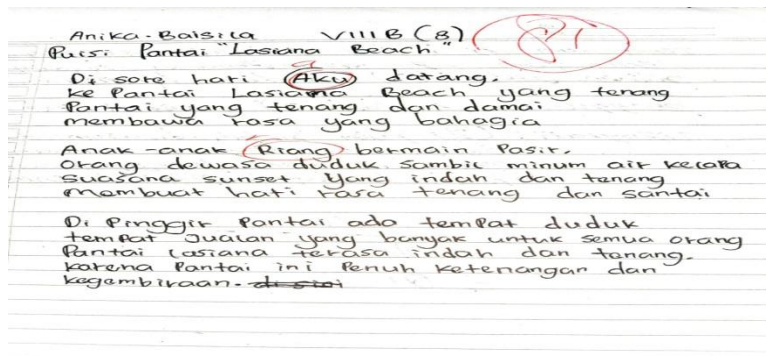 Anika. Balsila VIII B (8)
81
Puisi Pantai "Lasiana Beach"
a
Di sore hari Aku datang.
Ke Pantai Lasiana Beach yang tenang
Pantai yang tenang dan damai
membawa rasa yang bahagia
Anak-anak Riang bermain Pasir.
Orang dewasa duduk sambil minum air kelapa
Suasana sunset yang indah dan tenang
membuat hati rasa tenang dan santai
Di Pinggir Pantai ada tempat duduk
tempat Jualan yang banyak untuk semua orang
Pantai Lasiana terasa indah dan tenang.
karena Pantai ini Penuh ketenangan dan
kegembiraan. disini